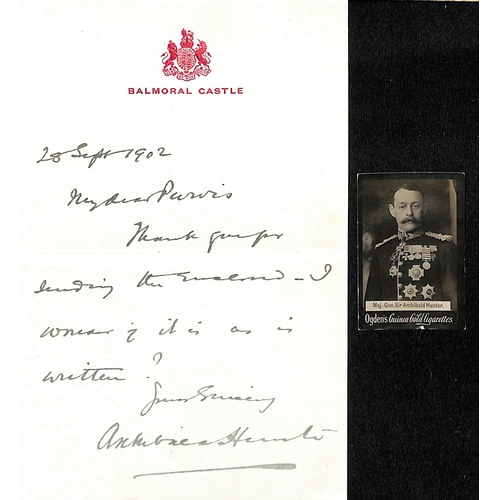 BALMORAL CASTLE
28 Sept 1902
My dear Purvis
Thank you for
sending the Enclosed - I
wonder if it is as is
written?
Yours Sincerely
Archibald Hunter
Maj. Gen. Sir Archibald Hunter
Ogden's Guinea Gold Cigarettes.